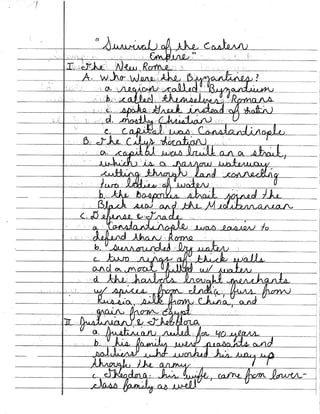 "Survival of the Eastern
Empire"
I. The New Rome
A. Who Were the Byzantines?
a. region called Byzantium
b. called themselves Romans
c. spoke Greek instead of Latin
d. mostly Christian
e. capital was Constantinople
B. The City's Location
a. capital was built on a strait,
which is a narrow waterway
cutting through land connecting
two bodies of water
b. the Bosporus strait joined the
Black sea and the Mediterranean
C. Defense & Trade
a. Constantinople was easier to
defend than Rome
b. surrounded by water
c. two rings of thick walls
and a moat filled w/ water
d. the harbors brought merchants
w/ spices from India, furs from
Russia, silk from China, and
grain from Egypt
II. Justinian & Theodora
a. Justinian ruled for 40 years
b. his family were peasants and
soldiers who worked his way up
through the army
c. Theodora- his wife, came from lower-
class family as well